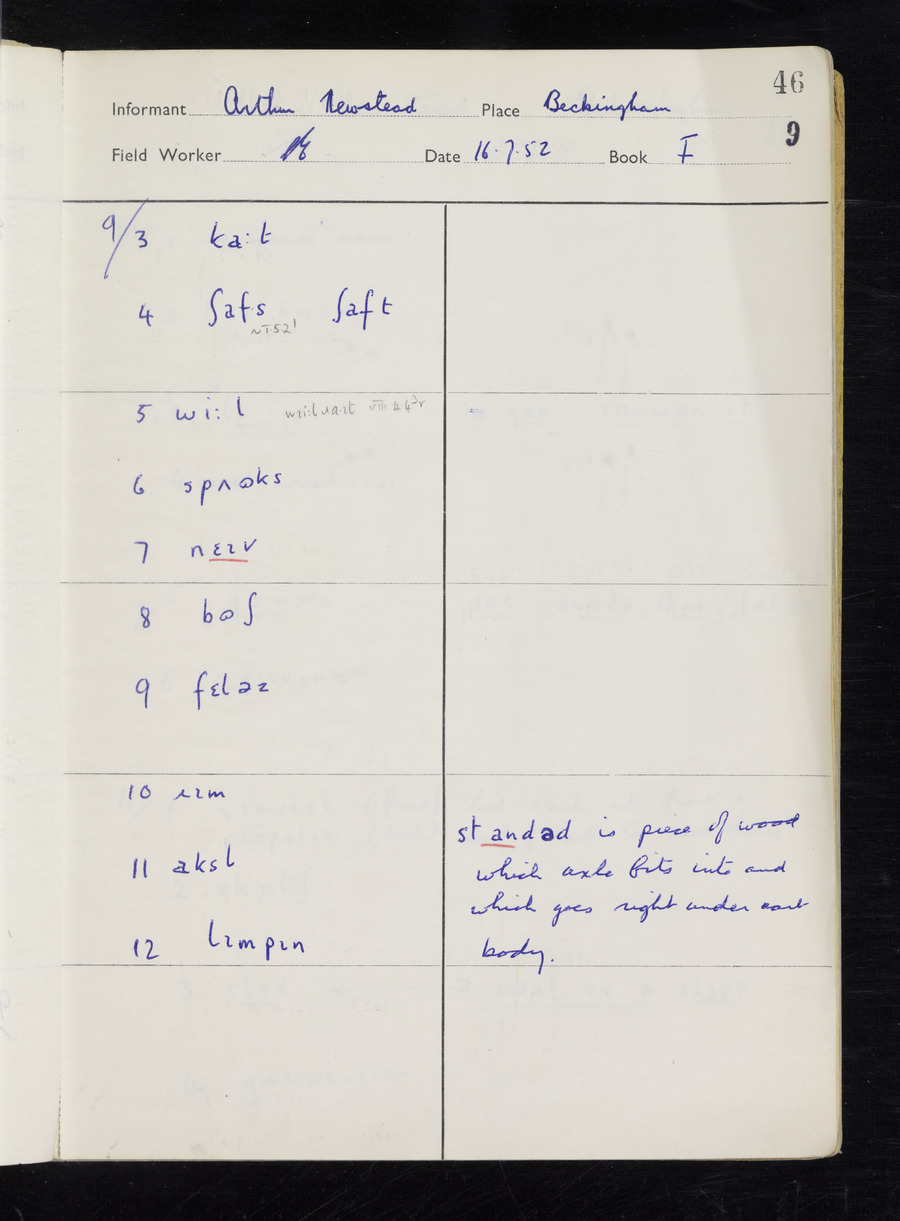 46
Informant Arthur Newstead Place Beckingham
9
Field Worker Date 16.7.52 Book I
9/3 ka:t
4 ʃafs ʃaft
5 wi:l
6 spʌɷks
7 nɛɪv
8 bɷʃ
9 fɛləz
10 ɹɪm
11 aksl
12 lɪmpɪn
standəd is piece of wood
which axle fits into and
which goes right under cart
body.